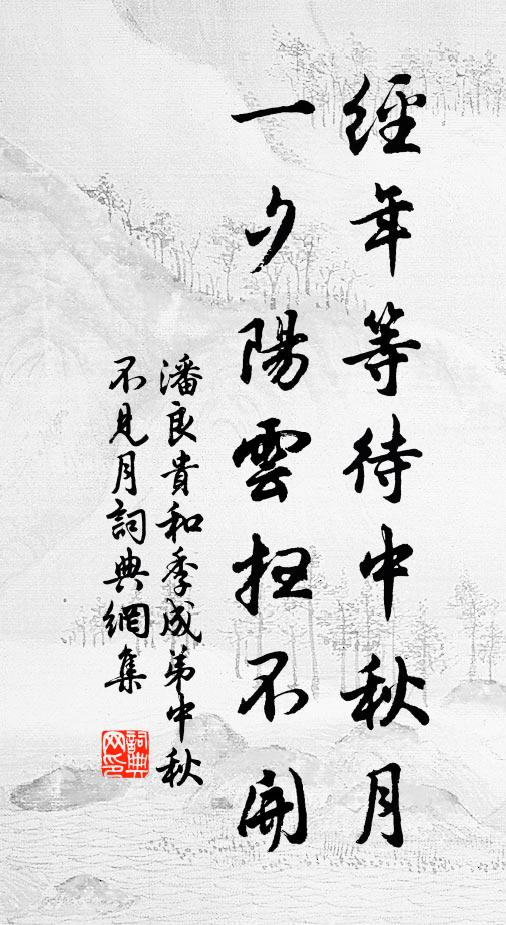 經年等待中秋月
一夕陽雲扫不開
潘良貴和季成弟中秋
不見月詞典網集
詞典
网印